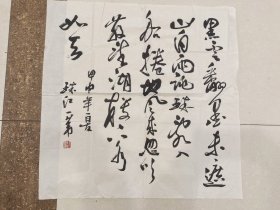 黑雲翻墨未遮
山白雨跳珠亂入
船捲地風來忽吹
散望湖樓下水
如天
甲申年
珠江